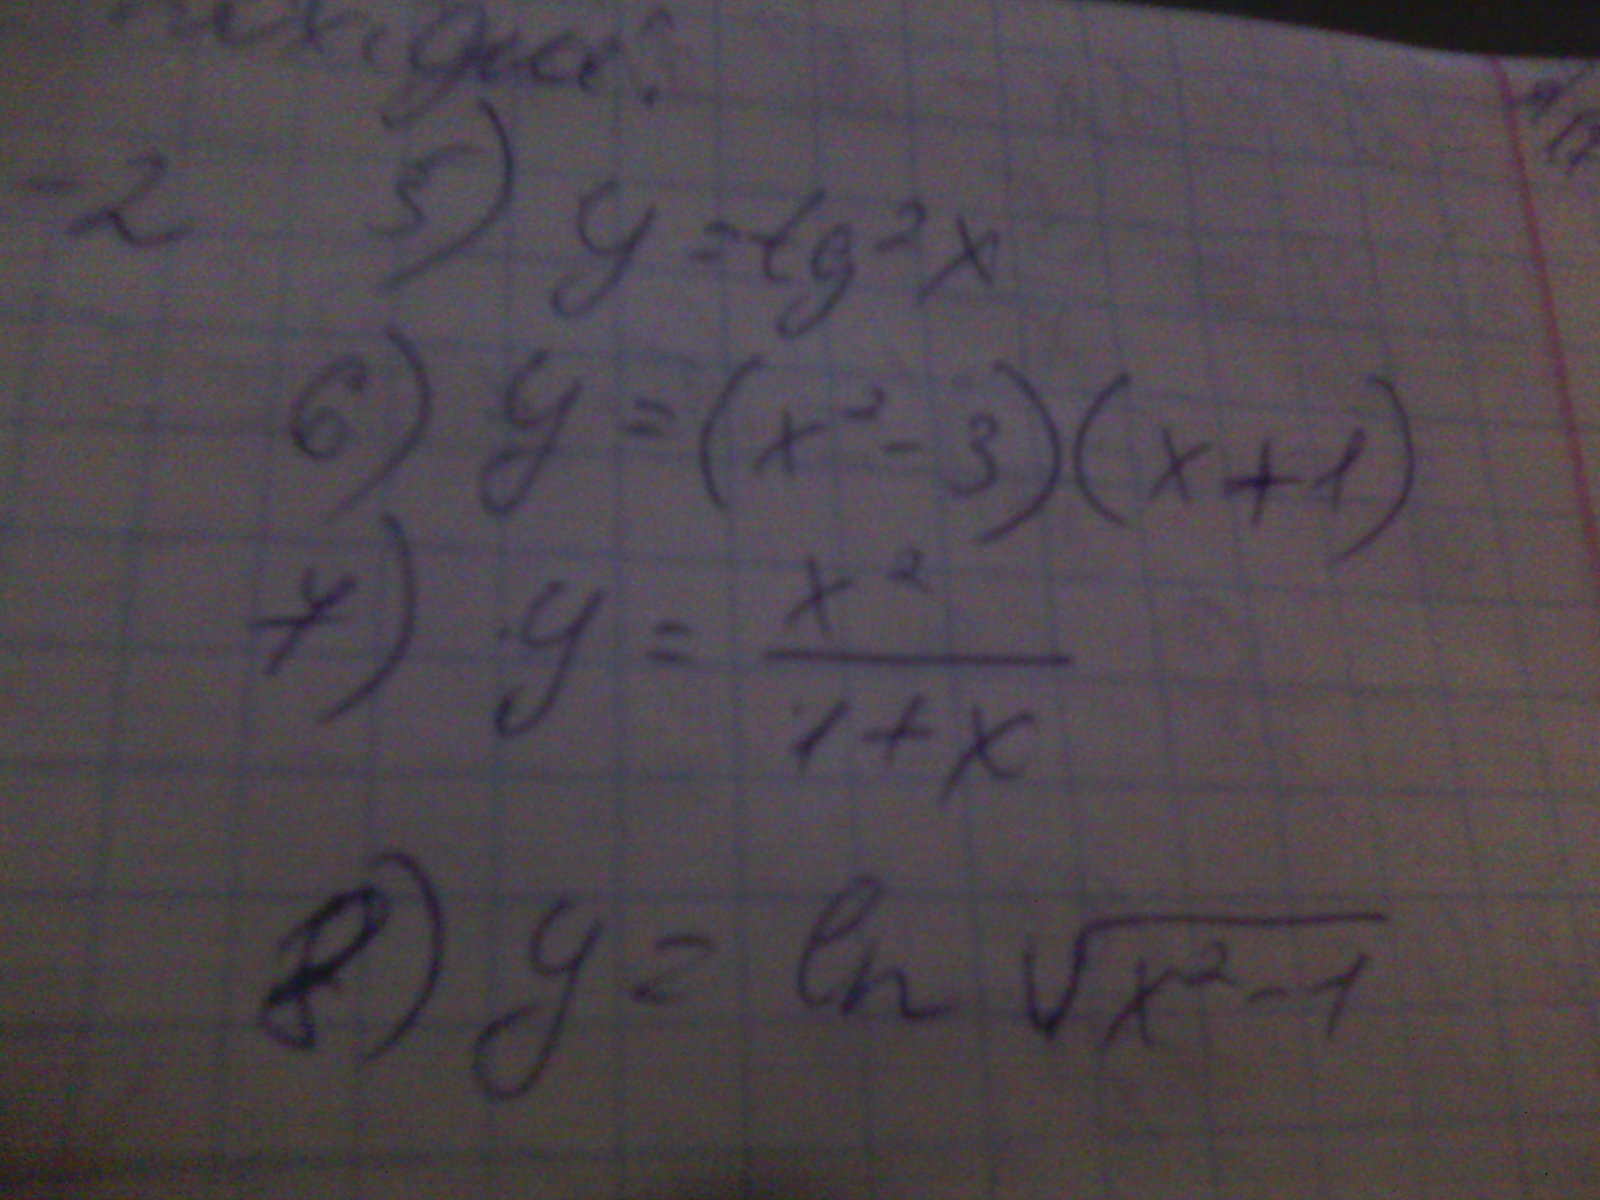 -2 5) y = tg²x
6) y = (x² - 3)(x + 1)
7) y = x² / (1 + x)
8) y = ln √(x² - 1)